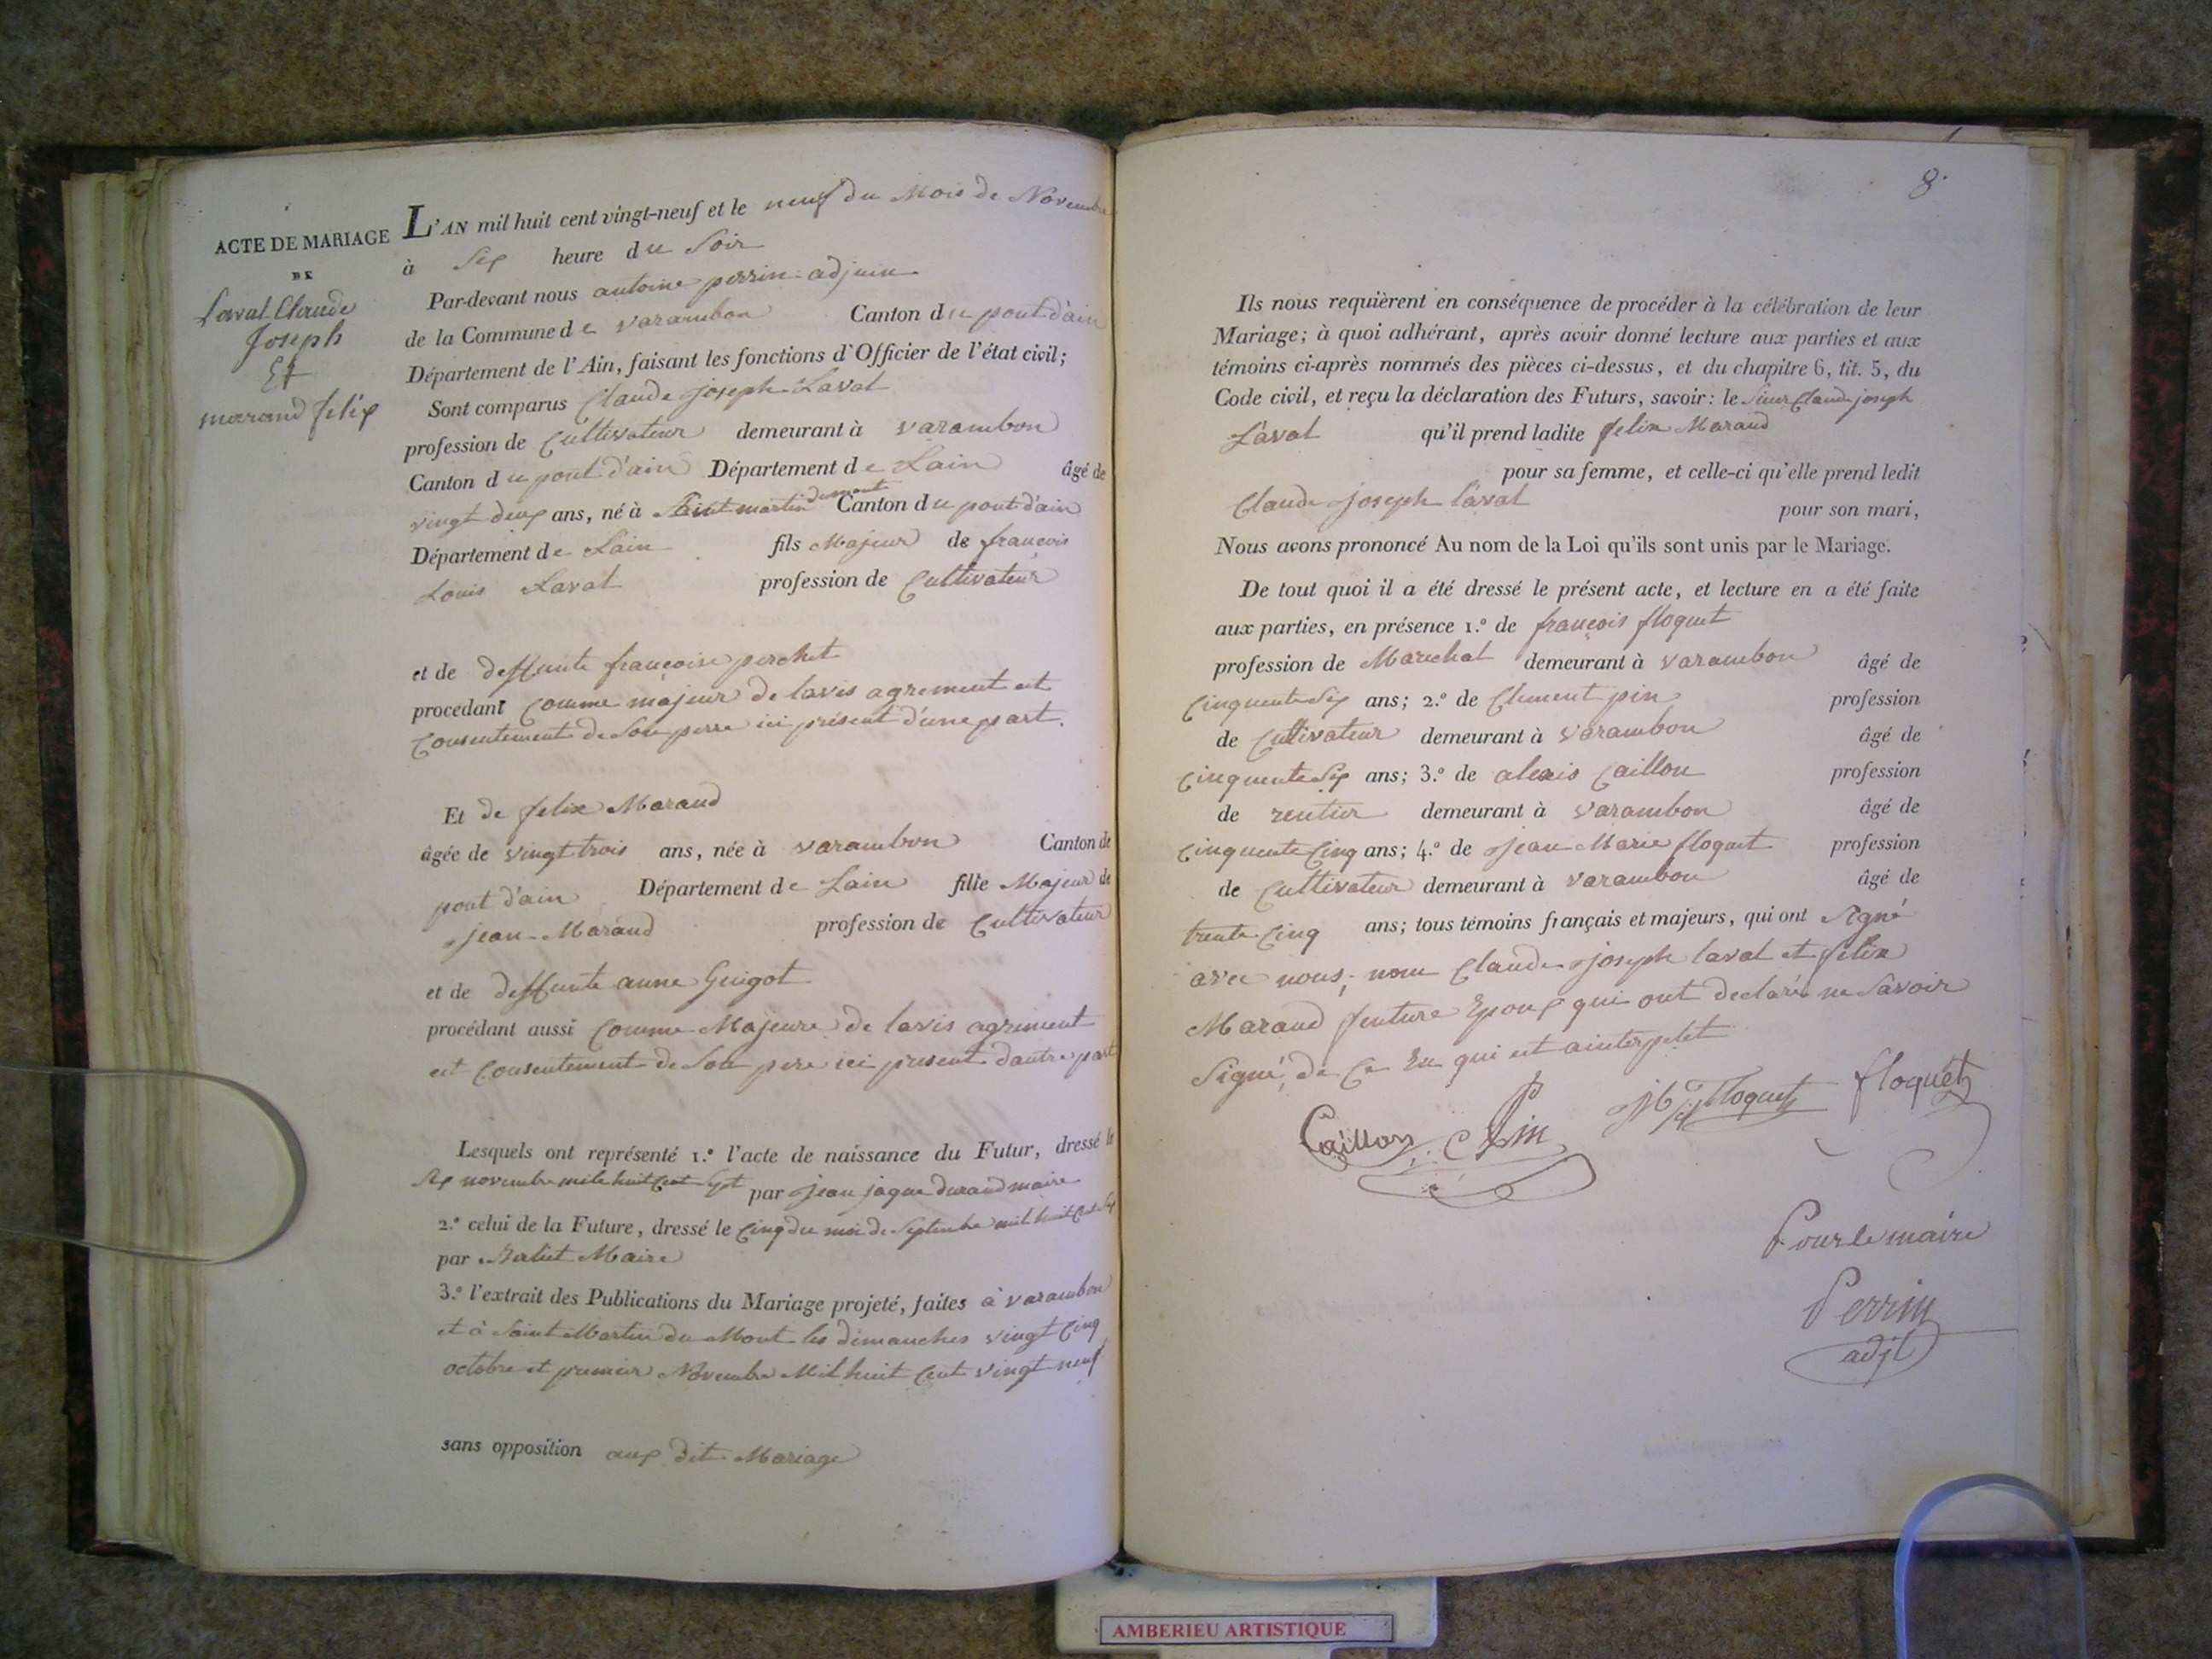 ACTE DE MARIAGE
DE
Laval Claude
Joseph
Et
marand felix
L'AN mil huit cent vingt-neuf et le neuf du Mois de Novembre
à Six heure du Soir
Par-devant nous antoine perrin adjoin
de la Commune de varambon Canton du pont d'ain
Département de l'Ain, faisant les fonctions d'Officier de l'état civil;
Sont comparus Claude joseph Laval
profession de Cultivateur demeurant à varambon
Canton du pont d'ain Département de Lain âgé de
vingt deux ans, né à Saint martin dumont Canton du pont d'ain
Département de Lain fils Majeur de françois
Louis Laval profession de Cultivateur
et de deffunte françoise perchet
procédant Comme majeur de lavis agrement et
Consentement de Son perre ici présent d'une part.
Et de felix Marand
âgée de vingt trois ans, née à varambon Canton de
pont d'ain Département de Lain fille Majeur de
jean Marand profession de Cultivateur
et de deffunte anne Guigot
procédant aussi Comme Majeure de lavis agriment
et Consentement de Son pere ici present dautre part
Lesquels ont représenté 1.º l'acte de naissance du Futur, dressé le
Six novembre mile huit Cent Sept par jean jaque durand maire
2.º celui de la Future, dressé le Cinq du moi de Septembre mil huit Cent Six
par Maire
3.º l'extrait des Publications du Mariage projeté, faites à varambon
et à Saint Martin du Mont les dimanches vingt Cinq
octobre et premier Novembre Mil huit Cent vingt neuf
sans opposition aux dit Mariage
8.
Ils nous requièrent en conséquence de procéder à la célébration de leur
Mariage; à quoi adhérant, après avoir donné lecture aux parties et aux
témoins ci-après nommés des pièces ci-dessus, et du chapitre 6, tit. 5, du
Code civil, et reçu la déclaration des Futurs, savoir: le Sieur Claude joseph
Laval qu'il prend ladite felix Marand
pour sa femme, et celle-ci qu'elle prend ledit
Claude joseph laval pour son mari,
Nous avons prononcé Au nom de la Loi qu'ils sont unis par le Mariage.
De tout quoi il a été dressé le présent acte, et lecture en a été faite
aux parties, en présence 1.º de françois floquet
profession de Marechal demeurant à varambon âgé de
Cinquente Six ans; 2.º de Clement pin profession
de Cultivateur demeurant à varambon âgé de
Cinquente Six ans; 3.º de alexis Caillon profession
de rentier demeurant à varambon âgé de
Cinquente Cinq ans; 4.º de jean Marie floquet profession
de Cultivateur demeurant à varambon âgé de
trente Cinq ans; tous témoins français et majeurs, qui ont Signé
avec nous, non Claude joseph laval et felix
Marand fenture Epoux qui ont declarés ne Savoir
Signé, de Ce En qui et ainterpelet
Caillon C Pin floquet floquet
Pour le maire
Perrin
adjt
AMBERIEU ARTISTIQUE